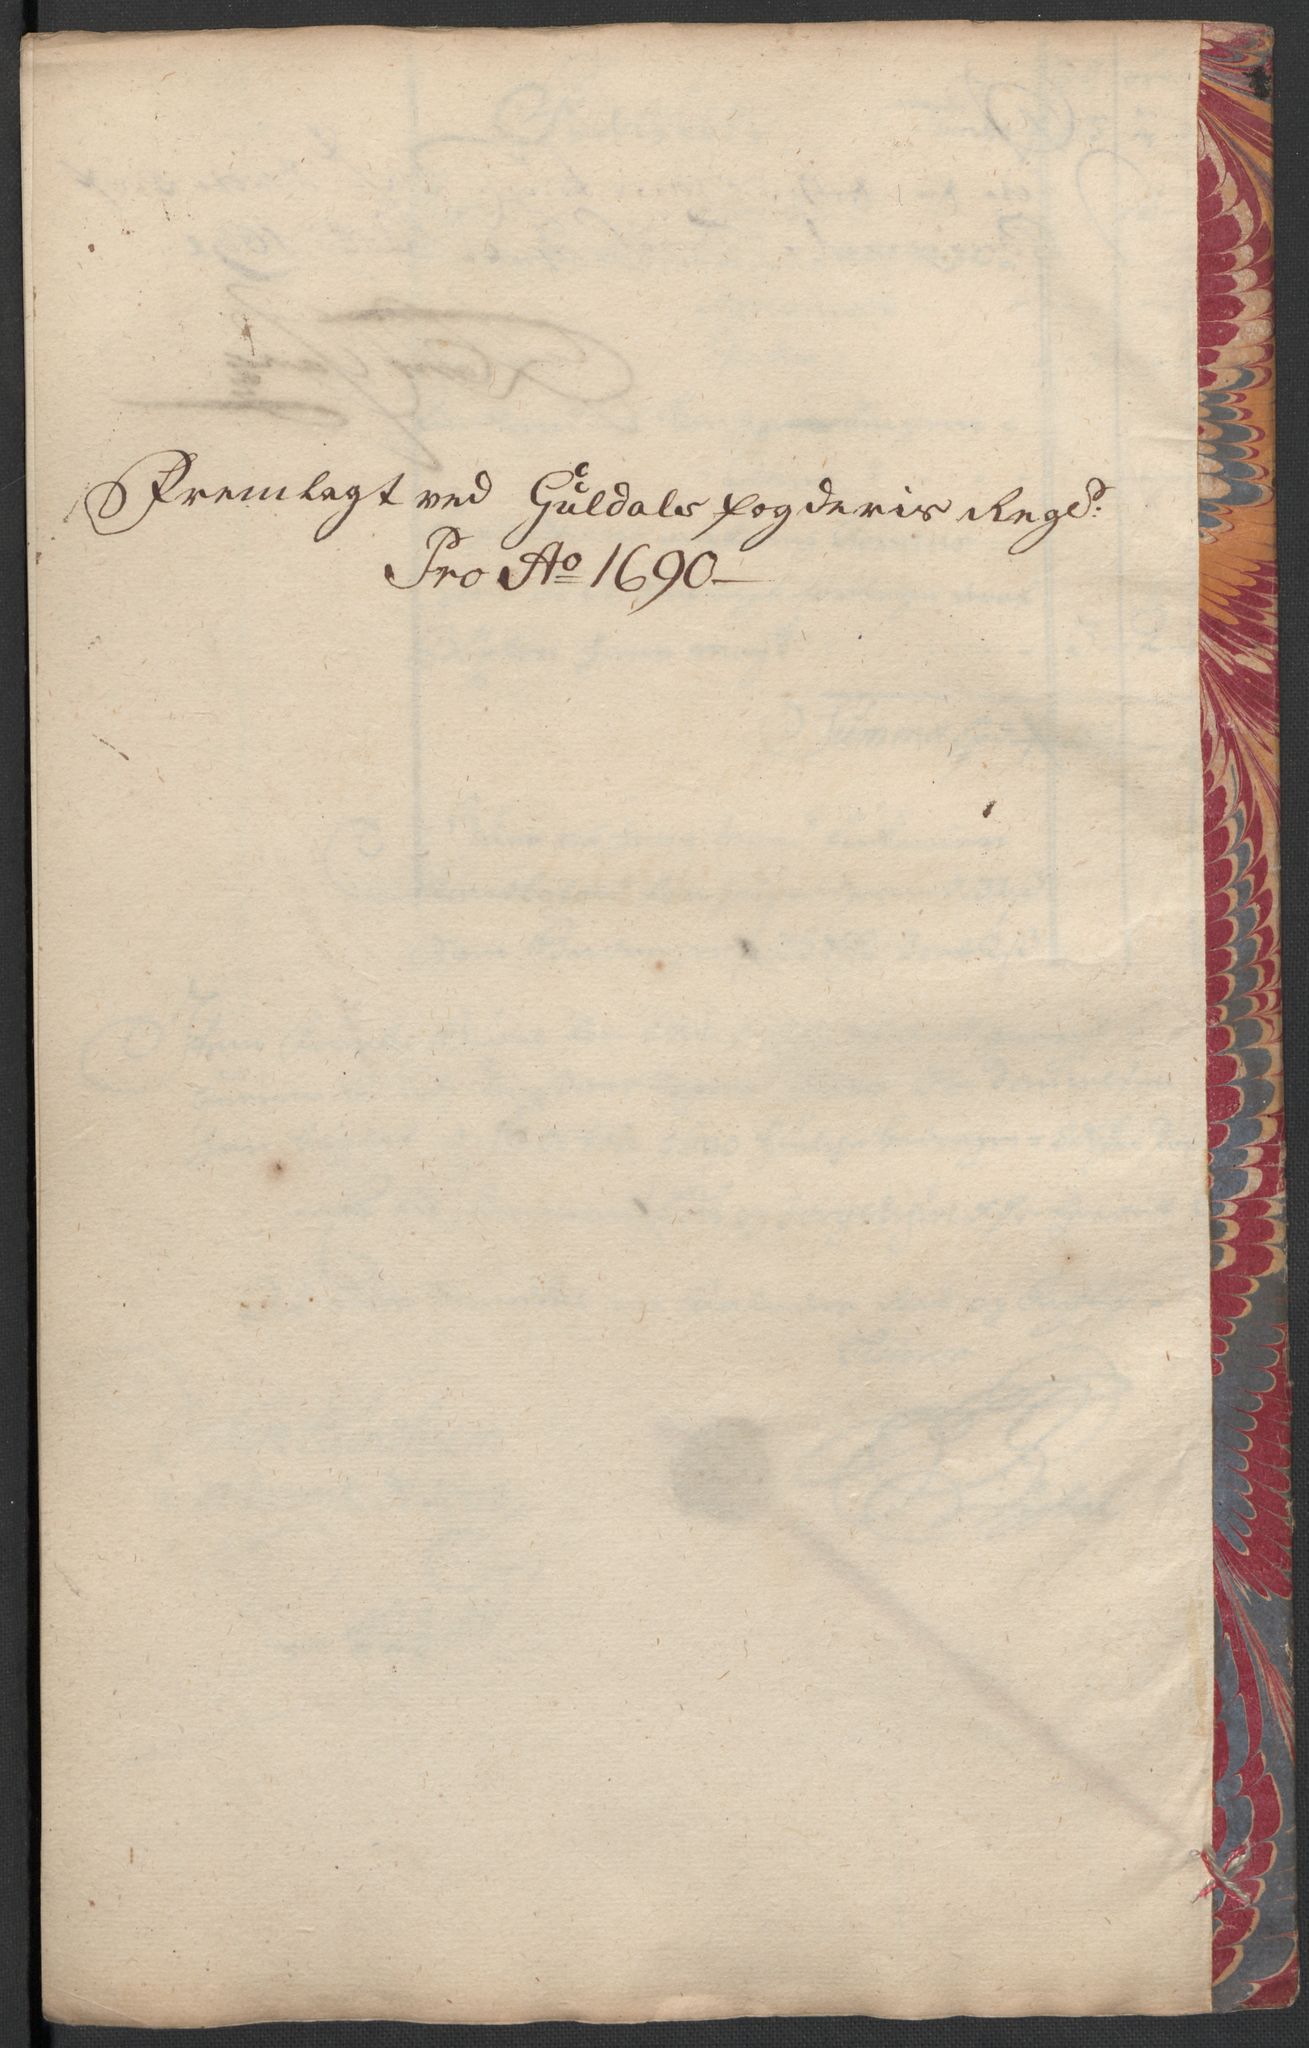 Fremlagt ved Guldals fogderis Regd:
Pro Ao 1690